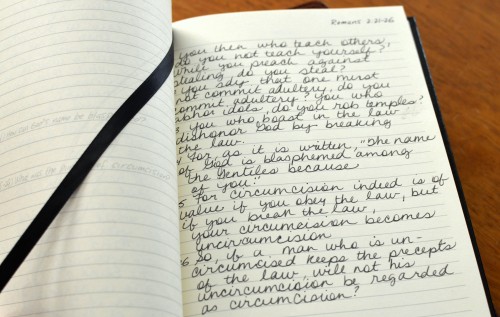 Romans 2:21-26
you then who teach others,
do you not teach yourself?
While you preach against
stealing do you steal?
you say that one must
not commit adultery, do you
commit adultery? You who
abhor idols, do you rob temples?
3 you who boast in the law
dishonor God by breaking
the law.
4 For, as it is written, "The name
of God is blasphemed among
the Gentiles because
of you."
5 For circumcision indeed is of
value if you obey the law, but
if you break the law,
your circumcision becomes
uncircumcision.
26 So, if a man who is un-
circumcised keeps the precepts
of the law, will not his
uncircumcision be regarded
as circumcision?